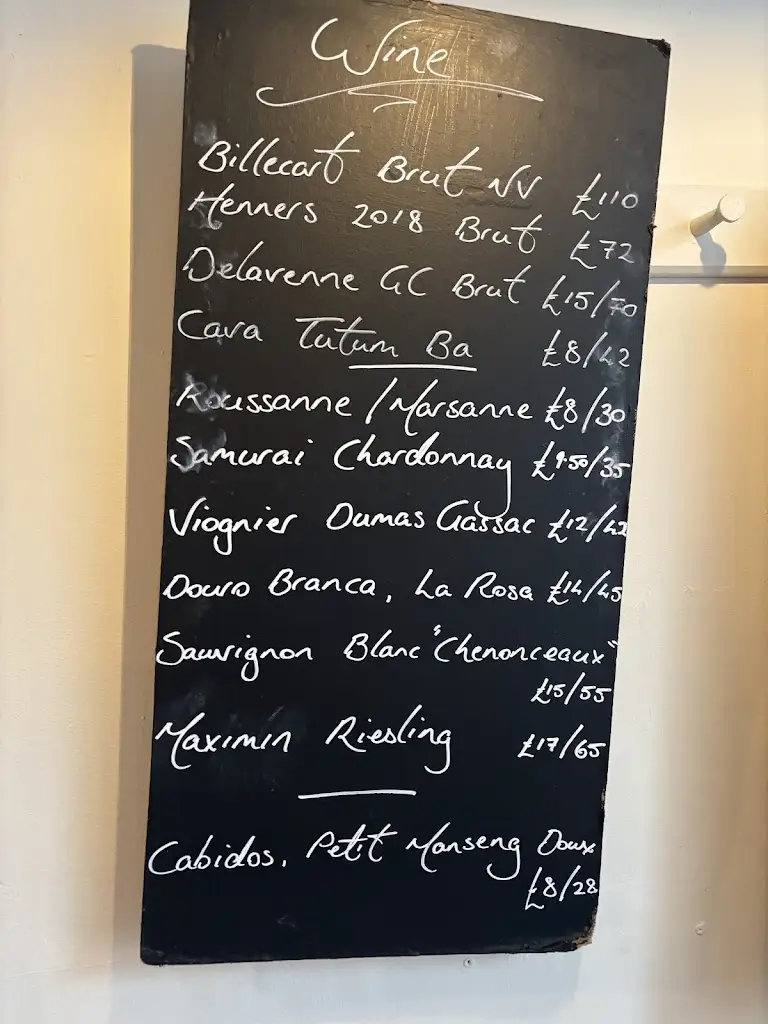 Wine
Billecart Brut NV £110
Henners 2018 Brut £72
Delavenne GC Brut £15/70
Cava Tutum Ba £8/42
Roussanne / Marsanne £8/30
Samurai Chardonnay £9.50/35
Viognier Dumas Gassac £12/42
Douro Branca, La Rosa £14/45
Sauvignon Blanc "Chenonceaux"
£15/55
Maximin Riesling £17/65
Cabidos. Petit Manseng Doux
£8/28